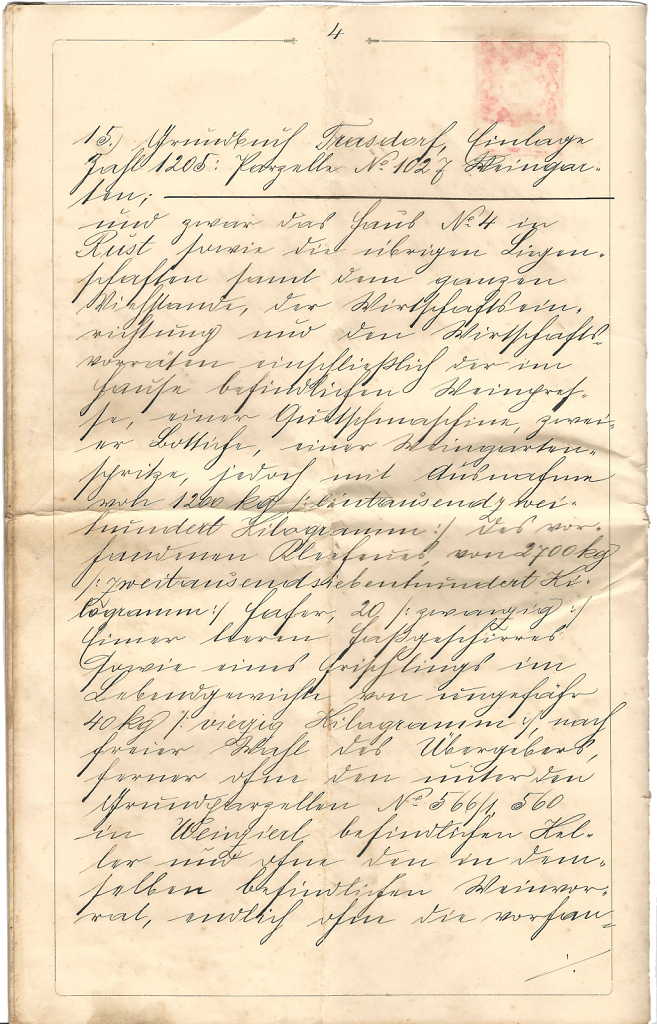 4
15.) Grundbuch Trasdorf, Einlage
Zahl 1205: Parzelle No 1027 Weingar-
ten;
und zwar das Haus No 4 in
Rust sowie die übrigen Liegen-
schaften samt dem ganzen
Viehstande, der Wirtschaftsein-
richtung und den Wirtschafts-
vorräten einschließlich der im
Hause befindlichen Weinpres-
se, einer Quetschmaschine, zwei-
er Bottiche, einer Weingarten-
spritze, jedoch mit Ausnahme
von 1200 kg /: eintausendzwei-
hundert Kilogramm :/ des vor-
handenen Kleeheues, von 2700 kg
/: zweitausendsiebenhundert Ki-
logramm :/ Hafer, 20 /: zwanzig :/
Eimer leeren Faßgeschirres
sowie eines Frischlings im
Lebendgewichte von ungefähr
40 kg /: vierzig Kilogramm :/, nach
freier Wahl des Übergebers,
ferner ohne den unter den
Grundparzellen No 566/1, 560
in befindlichen Kel-
ler und ohne den in dem-
selben befindlichen Weinvor-
rat, endlich ohne die vorhan-
./.